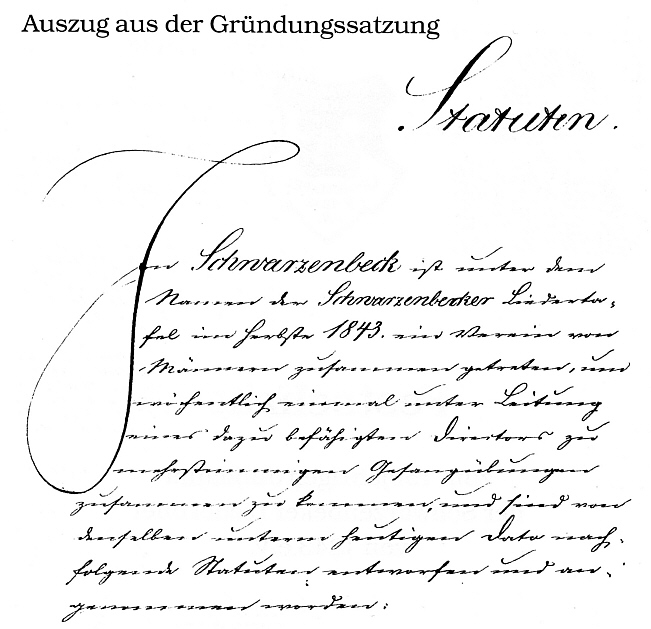 Auszug aus der Gründungssatzung
Statuten.
In Schwarzenbeck ist unter dem
Namen der Schwarzenbecker Liederta-
fel im Herbste 1843. ein Verein von
Männern zusammen getreten, um
wöchentlich einmal unter Leitung
eines dazu befähigten Directors zu
mehrstimmigen Gesangübungen
zusammen zu kommen, und sind von
denselben unterm heutigen Dato nach-
folgende Statuten entworfen und an-
genommen worden: